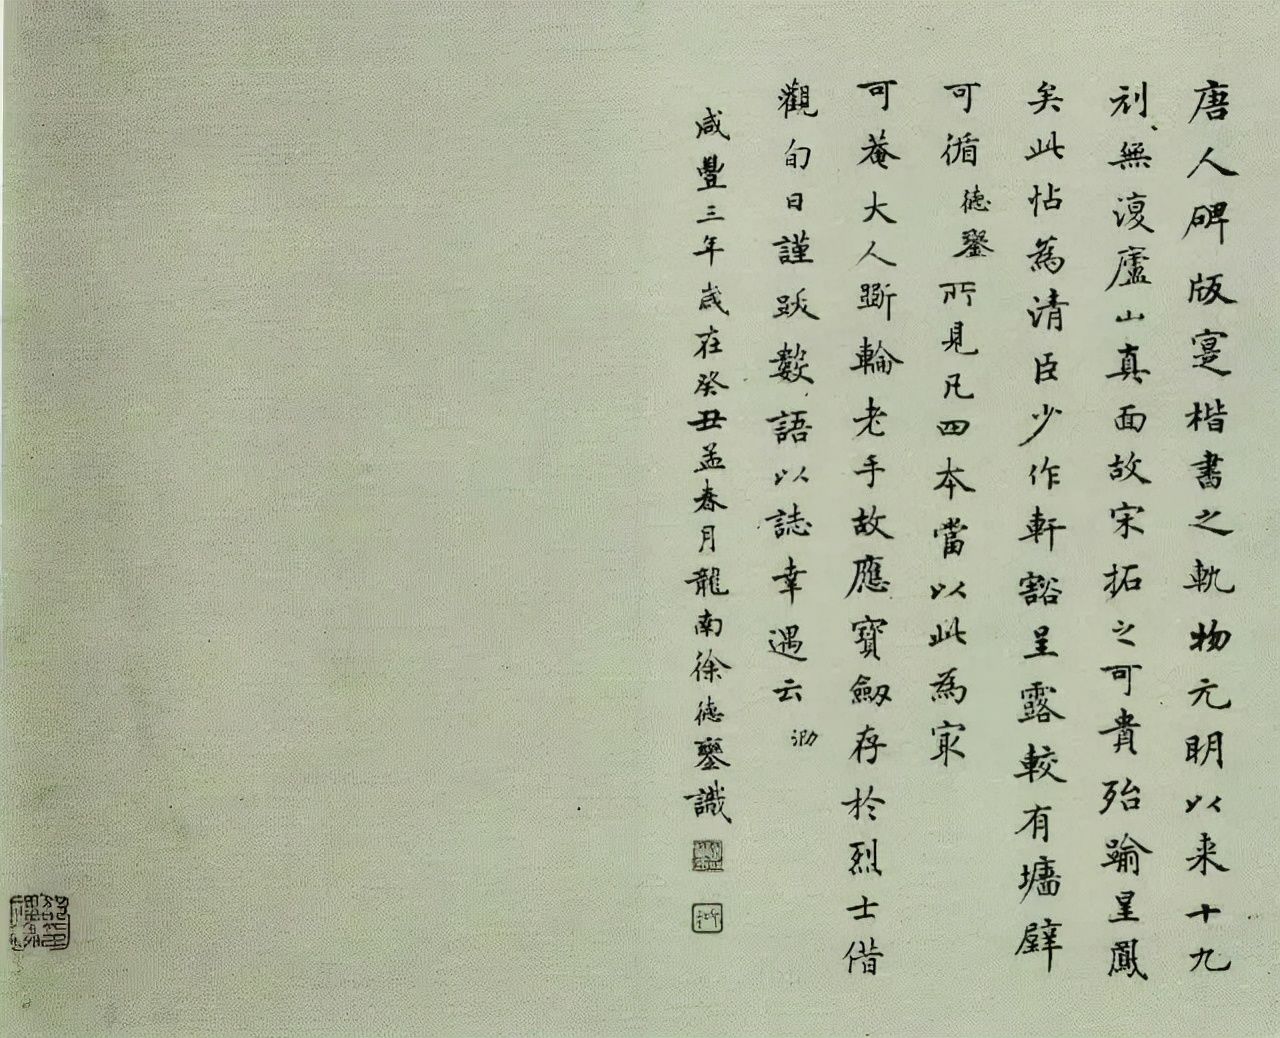 唐人碑版寔楷書之軌物元明以来十九
刓無復廬山真面故宋拓之可貴殆踰星鳳
矣此帖為清臣少作軒豁呈露較有墻壁
可循德瑩所見凡四本當以此為冣
可菴大人斲輪老手故應寶劒存於烈士借
觀旬日謹跋數語以誌幸遇云
咸豐三年歲在癸丑孟春月龍南徐德瑩識